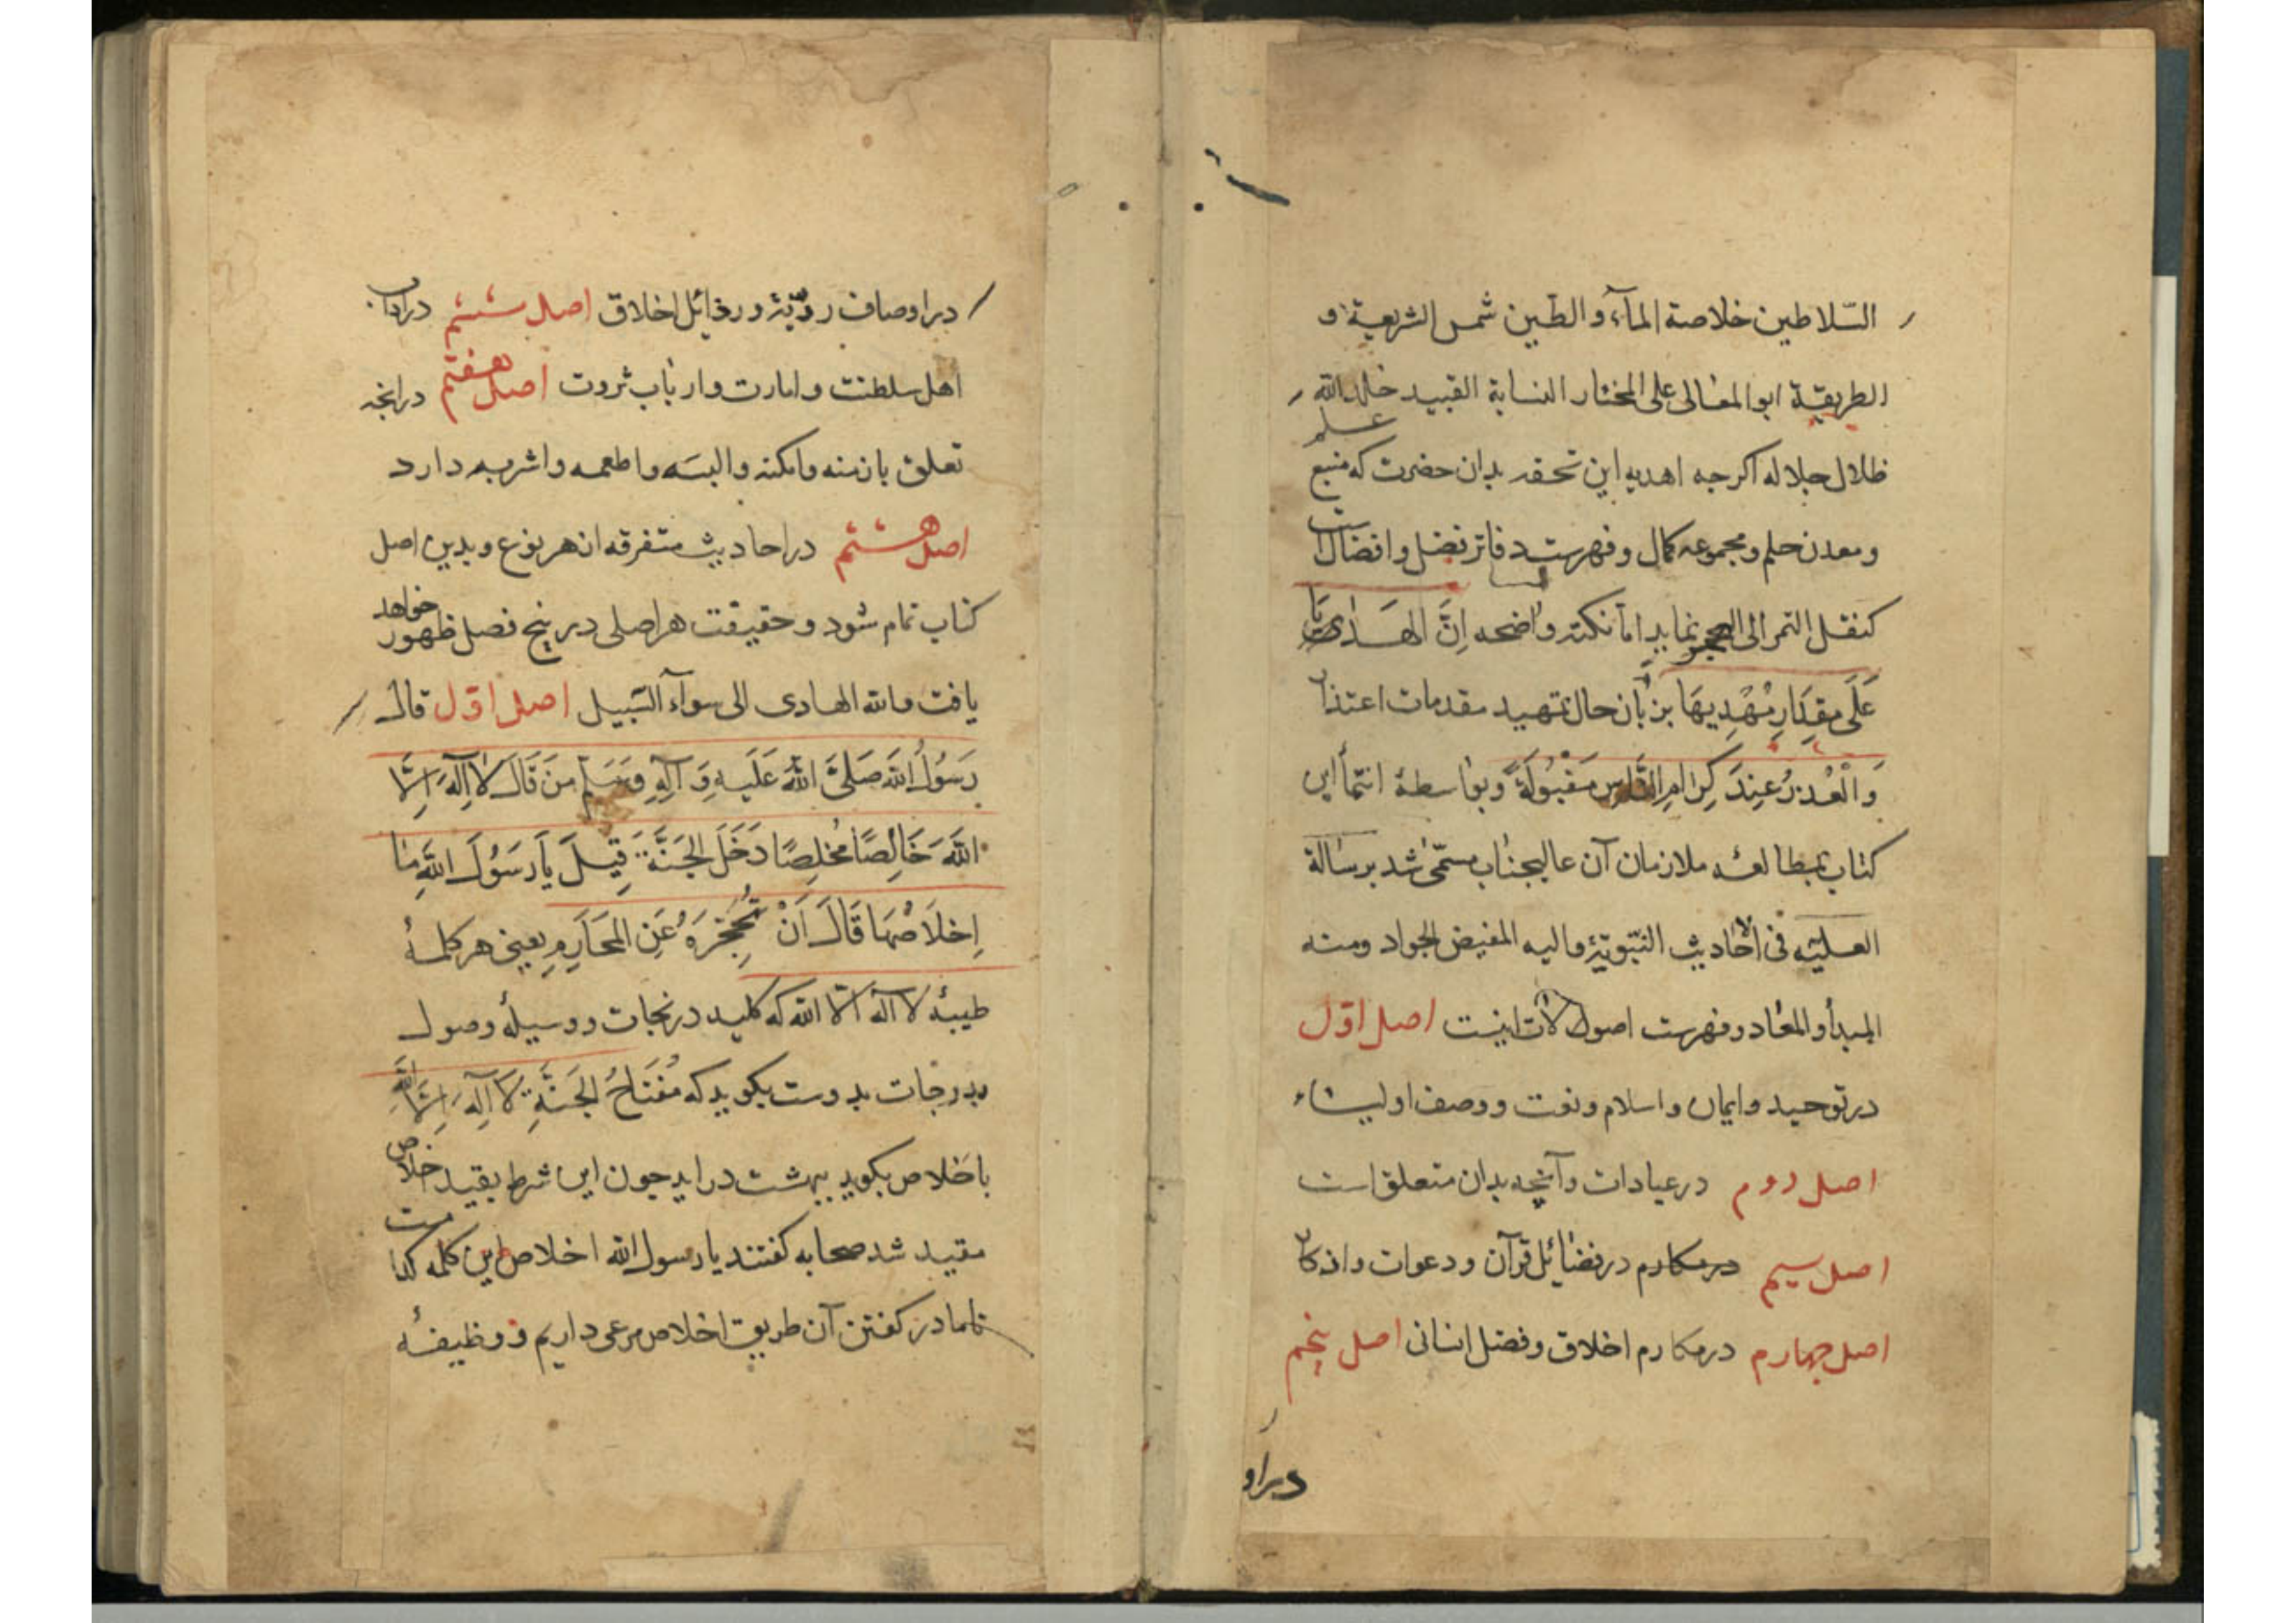 السّلاطین خلاصة المآء و الطّین شمس الشریعة و
الطریقة ابو المعالی علی المختار النسابة القبید خلد الله
ظلال جلاله اکرجه اهدیه این تحقه بدان حضرت که منبع علم
و معدن حلم و مجموعه کمال و فهرست دفاتر فضل و افضال است
کنقل التمر الی الهجر نماید اما نکته واضحه اِنَّ الهَدٰایٰا
عَلَی مِقدَارِ مُهْدِیهَا بزبان حال تمهید مقدمات اعتذار
وَالْعُذرُ عِندَ کِرَامِ النَّاسِ مَقْبُولَةً و بواسطهٔ انتمأ این
کتاب بمطالعهٔ ملازمان آن عالیجناب مسمّی شد برسالة
العلیّه فی الاحادیث النّبویّة و الیه المفیض الجواد و منه
المبدأ و المعاد و فهرست اصول اینست اصل اوّل
در توحید و ایمان و اسلام و نعت و وصف اولیاء
اصل دوم در عبادات و آنچه بدان متعلق است
اصل سیم در مکارم در فضائل قرآن و دعوات و اذکار
اصل جهارم در مکارم اخلاق و فضل انسانی اصل پنجم
در او
در اوصاف ردّیّة و رذائل اخلاق اصل ششم در اداب
اهل سلطنت و امارت و ارباب ثروت اصل هفتم در انجه
تعلق بازمنه و امکنه و البسه و اطعمه و اشربه دارد
اصل هشتم در احادیث متفرقه از هر نوع و بدین اصل
کتاب تمام شود و حقیقت هر اصلی در پنج فصل ظهور خواهد
یافت و الله الهادی الی سوآء السّبیل اصل اوّل قال
رَسُولُ اللهِ صَلَّی اللهُ عَلَیهِ وَ آلِهِ وَسَلَّم مَن قَالَ لَا اِلٰهَ اِلَّا
اللهَ خَالِصًا مُخلِصًا دَخَلَ الجَنَّةَ قِیلَ یَا رَسُولَ اللهِ مٰا
اِخلَاصُهَا قَالَ اَنْ تُحجِزَهُ عَنِ المَحَارِمِ یعنی هر کلمهٔ
طیبهٔ لا اله الّا الله که کلید در نجات و وسیلهٔ وصول
بدرجات بدوست بکوید که مفتَاحُ الجَنَّةِ لَا اِلٰهَ اِلَّا اللهُ
باخلاص بکوید ببهشت در اید جون این شرط بقید اخلاص
مقید شد صحابه کفتند یا رسول الله اخلاص این کلمه کدامست
تا ما در کفتن آن طریق اخلاص مرعی داریم و وظیفهٔ